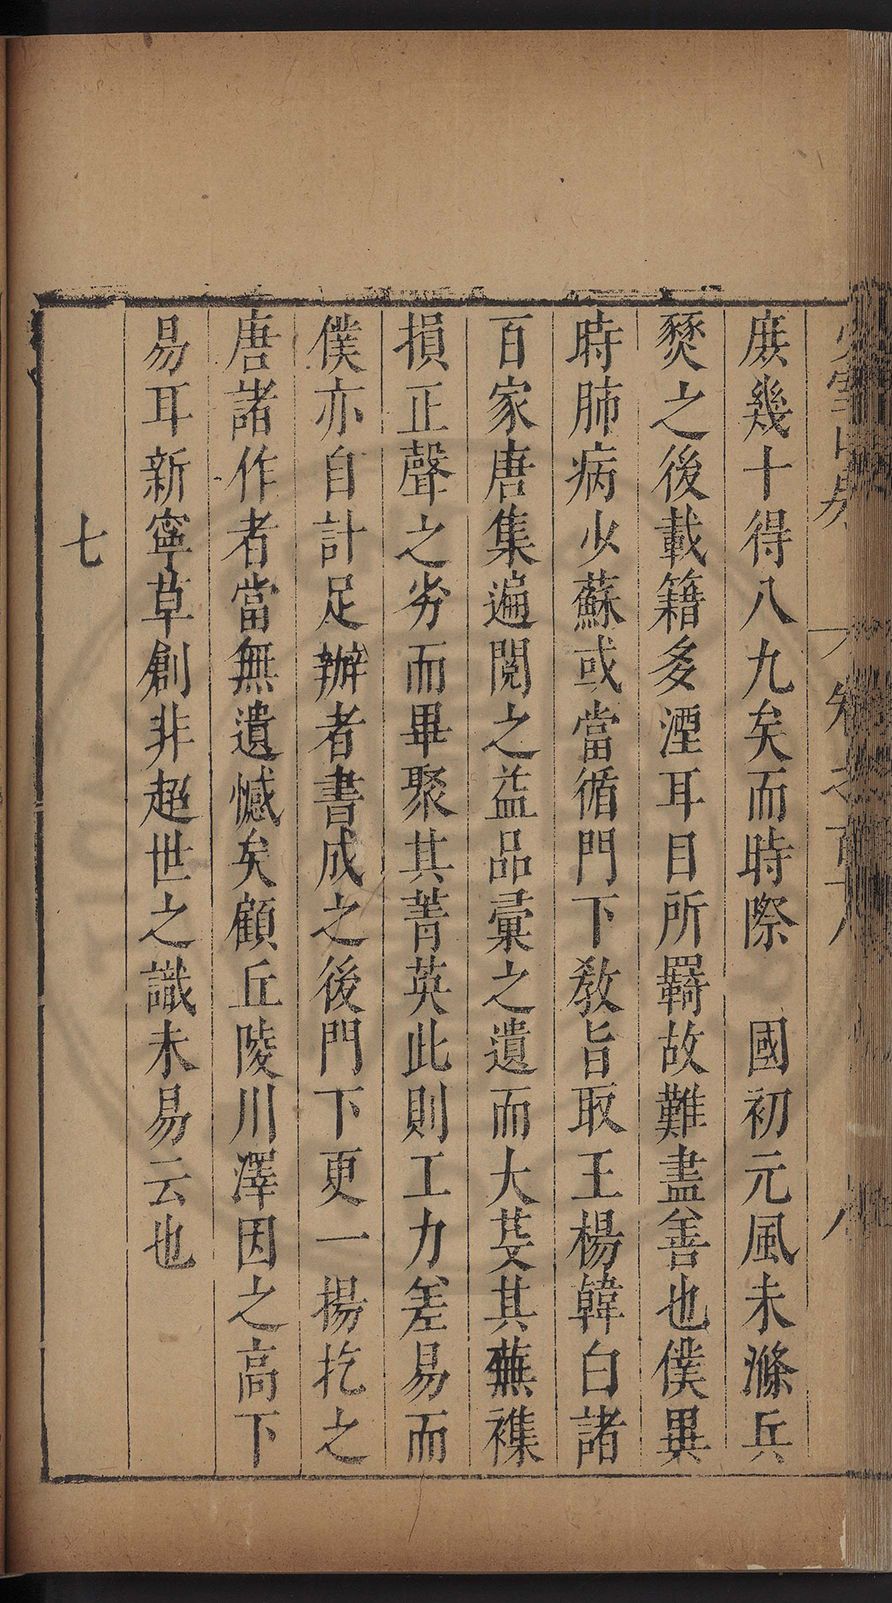 庶幾十得八九矣而時際　國初元風未滌兵
燹之後載籍多湮耳目所羇故難盡善也僕異
時肺病少蘇或當循門下教旨取王楊韓白諸
百家唐集遍閱之益品彙之遺而大芟其蕪襍
損正聲之劣而畢聚其菁英此則工力差易而
僕亦自計足辦者書成之後門下更一揚扢之
唐諸作者當無遺憾矣顧丘陵川澤因之高下
易耳新寧草創非超世之識未易云也
七